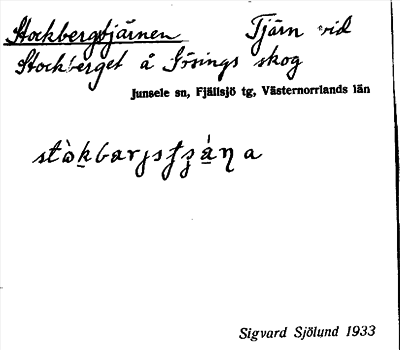 Stockbergstjärnen Tjärn vid
Stockberget å Gösings skog
Junsele sn, Fjällsjö tg, Västernorrlands län
Sigvard Sjölund 1933